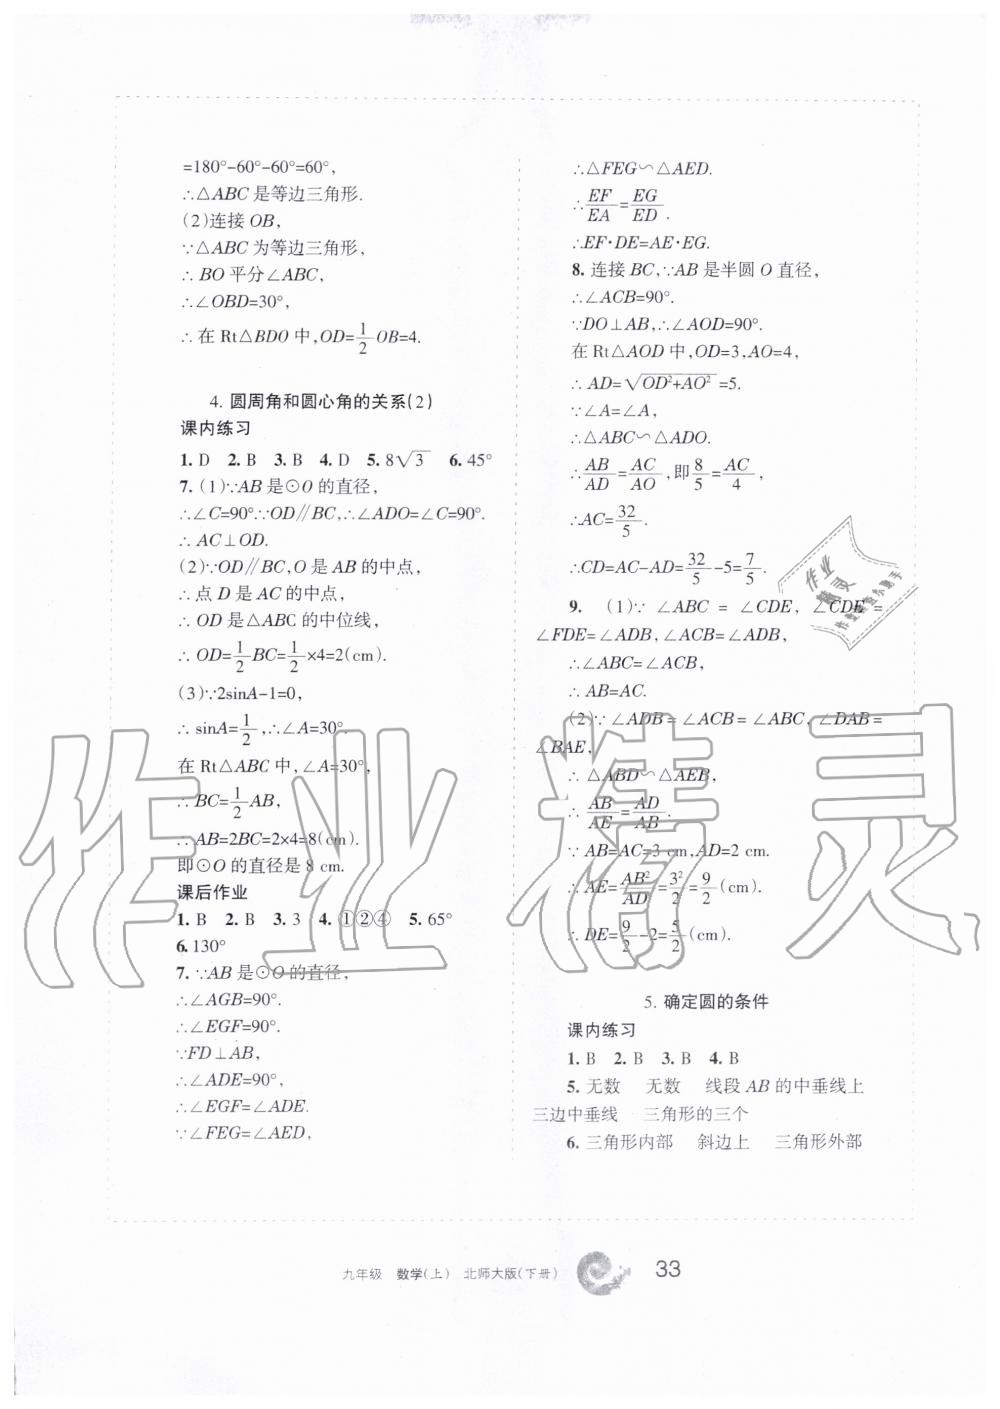 =180°-60°-60°=60°,
∴△ABC 是等边三角形.
(2)连接 OB,
∵△ABC 为等边三角形,
∴ BO 平分∠ABC,
∴∠OBD=30°,
∴ 在 Rt△BDO 中,OD=1/2 OB=4.
4. 圆周角和圆心角的关系(2)
课内练习
1. D 2. B 3. B 4. D 5. 8√3 6. 45°
7. (1)∵AB 是⊙O 的直径,
∴∠C=90°.∵OD∥BC,∴∠ADO=∠C=90°.
∴ AC⊥OD.
(2)∵OD∥BC,O 是 AB 的中点,
∴ 点 D 是 AC 的中点,
∴ OD 是△ABC 的中位线,
∴ OD=1/2 BC=1/2×4=2(cm).
(3)∵2sinA-1=0,
∴ sinA=1/2,∴∠A=30°.
在 Rt△ABC 中,∠A=30°,
∴ BC=1/2 AB,
∴ AB=2BC=2×4=8(cm).
即⊙O 的直径是 8 cm.
课后作业
1. B 2. B 3. 3 4. ①②④ 5. 65°
6. 130°
7. ∵AB 是⊙O 的直径,
∴∠AGB=90°.
∴∠EGF=90°.
∵FD⊥AB,
∴∠ADE=90°,
∴∠EGF=∠ADE.
∵∠FEG=∠AED,
∴△FEG∽△AED.
∴EF/EA=EG/ED.
∴EF·DE=AE·EG.
8. 连接 BC,∵AB 是半圆 O 直径,
∴∠ACB=90°.
∵DO⊥AB,∴∠AOD=90°.
在 Rt△AOD 中,OD=3,AO=4,
∴ AD=√(OD²+AO²)=5.
∵∠A=∠A,
∴△ABC∽△ADO.
∴AB/AD=AC/AO,即8/5=AC/4,
∴AC=32/5.
∴CD=AC-AD=32/5-5=7/5.
9. (1)∵ ∠ABC = ∠CDE, ∠CDE =
∠FDE=∠ADB,∠ACB=∠ADB,
∴∠ABC=∠ACB,
∴ AB=AC.
(2)∵∠ADB=∠ACB=∠ABC,∠DAB=
∠BAE,
∴ △ABD∽△AEB,
∴ AB/AE=AD/AB.
∵ AB=AC=3 cm,AD=2 cm.
∴ AE=AB²/AD=3²/2=9/2(cm).
∴ DE=9/2-2=5/2(cm).
5. 确定圆的条件
课内练习
1. B 2. B 3. B 4. B
5. 无数 无数 线段 AB 的中垂线上
三边中垂线 三角形的三个
6. 三角形内部 斜边上 三角形外部
九年级 数学(上) 北师大版(下册) 33
作业精灵
作业
精灵